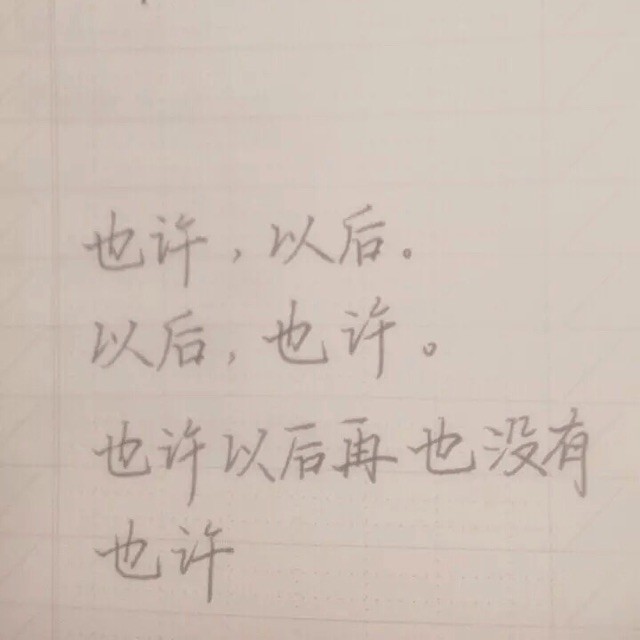 也许，以后。
以后，也许。
也许以后再也没有
也许